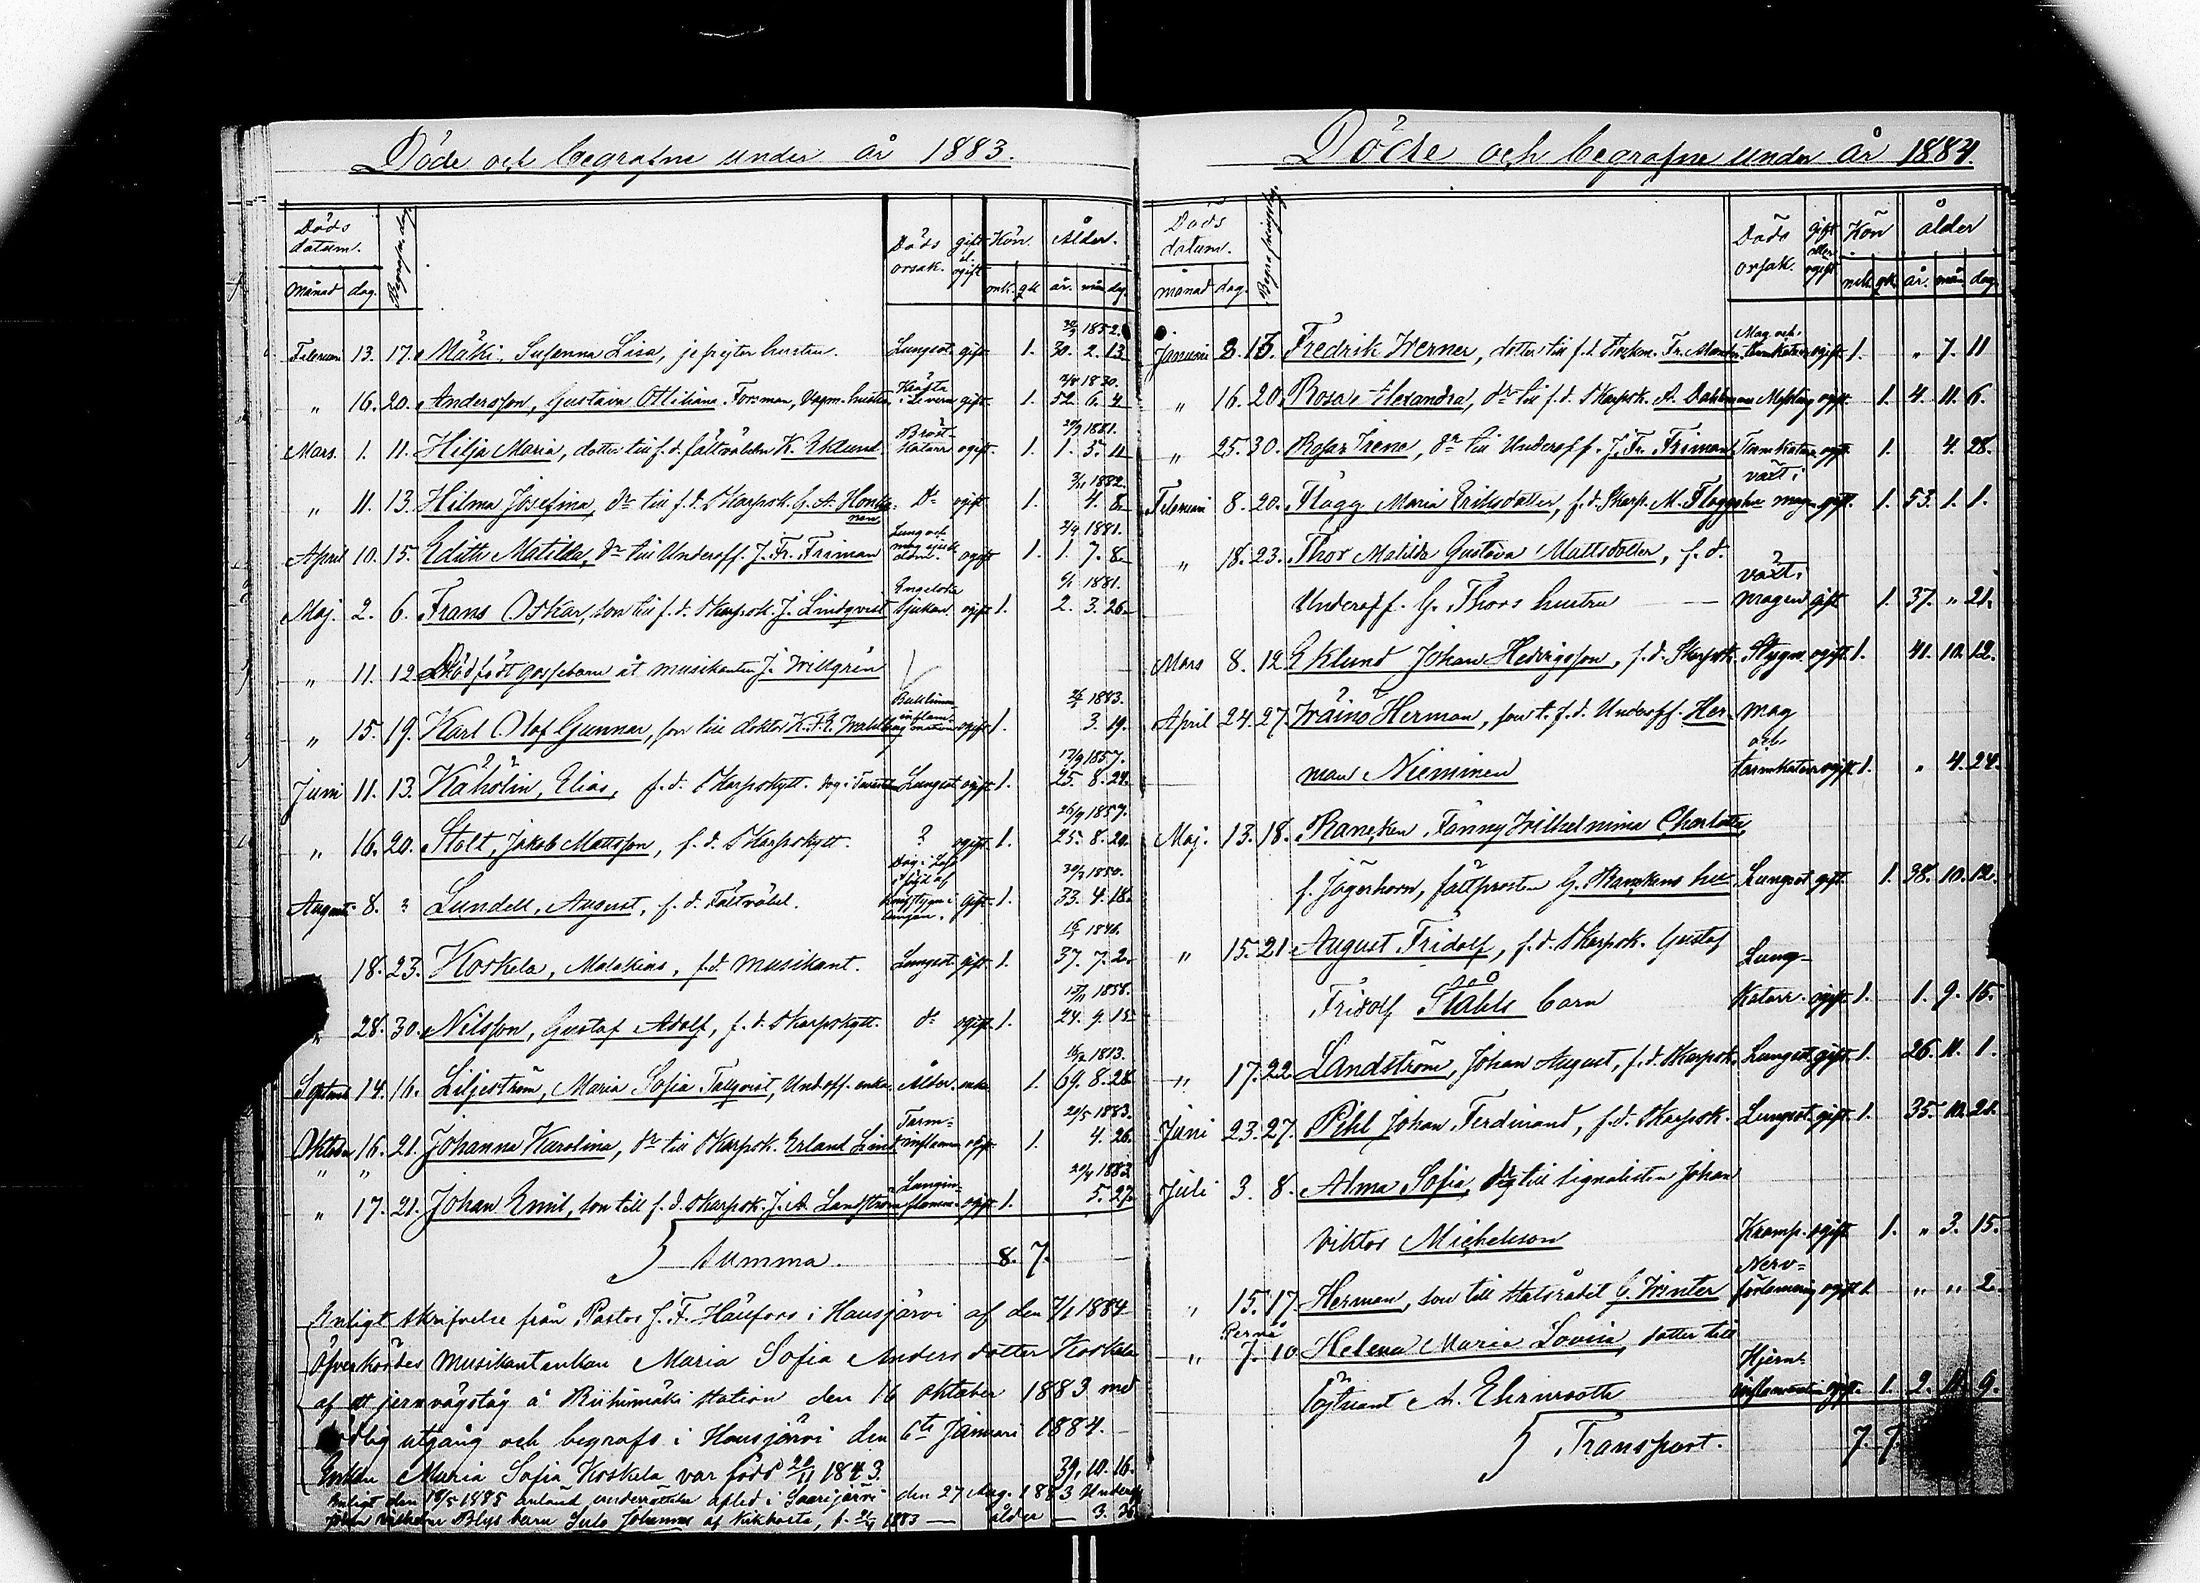 Döde och begrafne under år 1883.
Döds datum. Begrafn. dag Döds orsak. gift el. ogift Kön. Ålder.
månad dag. mk. qk år. mån dag.
30/11 1852.
Februari 13. 17. Mäki, Susanna Lisa, jefrejter hustru. Lungsot gift 1. 30. 2. 13
2/8 1830.
" 16. 20. Andersson, Gustava Ottiliana Forsman, Vagm. hustru Kräfta i Levern gift 1. 52. 6. 4
Mars. 1. 11. Hilja Maria, dotter till f.d. fältväbeln K. Eklund Bröst-katarr ogift. 1. 1. 5. 11
1881.
1882.
" 11. 13. Hilma Josefina, dr till f.d. Skarpsk. G. A. Honkanen Do ogift 1. 4. 8
2/9 1881.
April 10. 15. Edith Matilda, dr till Underoff. J. Fr. Friman ogift 1. 1. 7. 8
1881.
Maj. 2. 6. Frans Oskar, son till f.d. Skarpsk. J. Lindqvist Engelska sjukan. ogift 1. 2. 3. 26
" 11. 12 Dödfödt gossebarn åt musikanten J. Willgrén
1883.
" 15. 19. Karl Olof Gunnar, son till doktor K. F. R. Wahlberg ogift 1. 3. 19.
17/9 1857.
Juni 11. 13. Kāhölin, Elias, f.d. Skarpskytt. Lungsot ogift 1. 25. 8. 24.
26/9 1857.
" 16. 20. Stolt, Jakob Mattsson, f.d. Skarpskytt. ? ogift 1. 25. 8. 20.
1850.
Augusti 8. ? Lundell, August, f.d. Fältväbel. gift 1. 33. 4. 18.
1846.
18. 23. Koskela, Malakias, f.d. musikant. Lungsot gift 1. 37. 7. 2.
1858.
" 28. 30. Nilsson, Gustaf Adolf, f.d. Skarpskytt. do ogift 1. 24. 9. 15
1813.
Septemb 14. 16. Liljeström, Maria Sofia Tallqvist, Undoff. enka. Ålder. enka 1. 69. 8. 28
21/5 1883.
Oktober 16. 21. Johanna Karolina, dr till Skarpsk. Erland Lind Tarm-inflamm ogift 1. 4. 26.
20/4 1883
" 17. 21. Johan Emil, son till f.d. Skarpsk. J. A. Landström Lungin-flamm. ogift 1. 5. 27
Summa. 8. 7.
Enligt skrifvelse från Pastor J. F. Häufors i Hausjärvi af den 7/1 1884
öfverkördes musikantenkan Maria Sofia Anders dotter Koskela
af ett jernvägståg å Riihimäki station den 16 oktober 1883 med
dödlig utgång och begrafs i Hausjärvi den 6te Januari 1884.
Enkan Maria Sofia Koskela var född 20/11 1843. 39. 10. 16.
Enligt den 18/5 1885 anländ underrättelse afled i Saarijärvi den 27 Aug. 1883 Underoff
Johan Wilhelm Blys barn Sulo Johannes af kikhosta, f. 1883 — ålder — 3.
Döde och begrafne under år 1884.
Döds datum. Begrafningsdag. Döds orsak. gift eller ogift Kön ålder
månad dag. mk. qk. år. mån dag.
Januari 8. 13. Fredrik Werner, dotter till f.d. Fr. Mag. och Tarmkatarr ogift 1. " 7. 11
" 16. 20. Rosa Alexandra, dr till f.d. Skarpsk. A. Dahlman Messling ogift. 1. 4. 11. 6.
" 25. 30. Rosa Irene, dr till Underoff. J. Fr. Friman Tarmkatarr ogift. 1. 4. 28.
Februari 8. 20. Flagg Maria Eriksdotter, f.d. Skarpsk. M. Flaggs växt i magen gift. 1. 53. 1. 1.
" 18. 23. Thor Matilda Gustava Mattsdotter, f.d.
Underoff. G. Thors hustru växt i magen gift 1. 37. " 21.
Mars 8. 12 Eklund Johan Hedvigsson, f.d. Skarpsk. Slagn. ogift 1. 41. 10. 12.
April 24. 27. Wäinö Herman, son t. f.d. Underoff. Her-
man Nieminen mag och tarmkatarr ogift 1. " 4. 24.
Maj. 13. 18. Rancken Fanny Wilhelmina Charlotta,
f. Jägerhorn, fältprosten G. Ranckens hu- Lungsot gift. 1. 38. 10. 12.
" 15. 21. August Fridolf, f.d. Skarpsk. Gustaf
Fridolf Ståhls barn Lung-Katarr. ogift. 1. 1. 9. 15.
" 17. 22. Landström, Johan August, f.d. Skarpsk. Lungsot. gift. 1. 26. 11. 1.
Juni 23. 27. Pihl Johan Ferdinand, f.d. Skarpsk. Lungsot. gift. 1. 35. 10. 21.
Juli 3. 8. Alma Sofia, till signalisten Johan
Viktor Michelsson Kramp. ogift 1. " 3. 15.
" 15. 17. Herman, son till statsrådet G. Winter Nerv-förlamning ogift 1. " " 2.
Pernå
" 7. 10 Helena Maria Lovisa, dotter till
löjtnant A. Ehrnrooth Hjern-inflammation ogift. 1. 2. 11. 9.
Transport. 7. 7